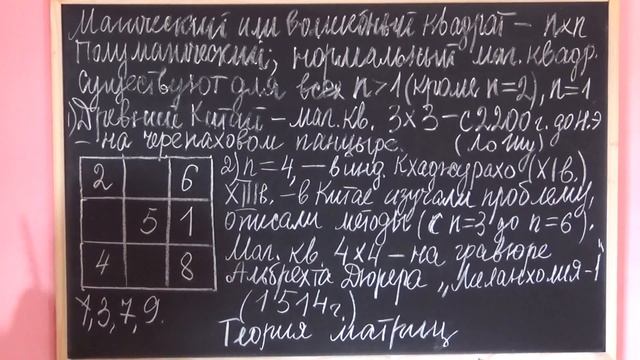 Магический или волшебный квадрат - n×n
Полумагический; нормальный маг. квадр.
Существуют для всех n>1 (кроме n=2), n=1
1) Древний Китай - маг. кв. 3×3 - с 2200 г. до н.э
- на черепаховом панцыре. (Ло Шу)
2 6
5 1
4 8
1, 3, 7, 9.
2) n=4, - в инд. Кхаджурахо (XI в.)
XIII в. - в Китае изучали проблему,
описали методы (с n=3 до n=6).
Маг. кв. 4×4 - на гравюре
Альбрехта Дюрера „Меланхолия-1"
(1514 г.)
Теория матриц